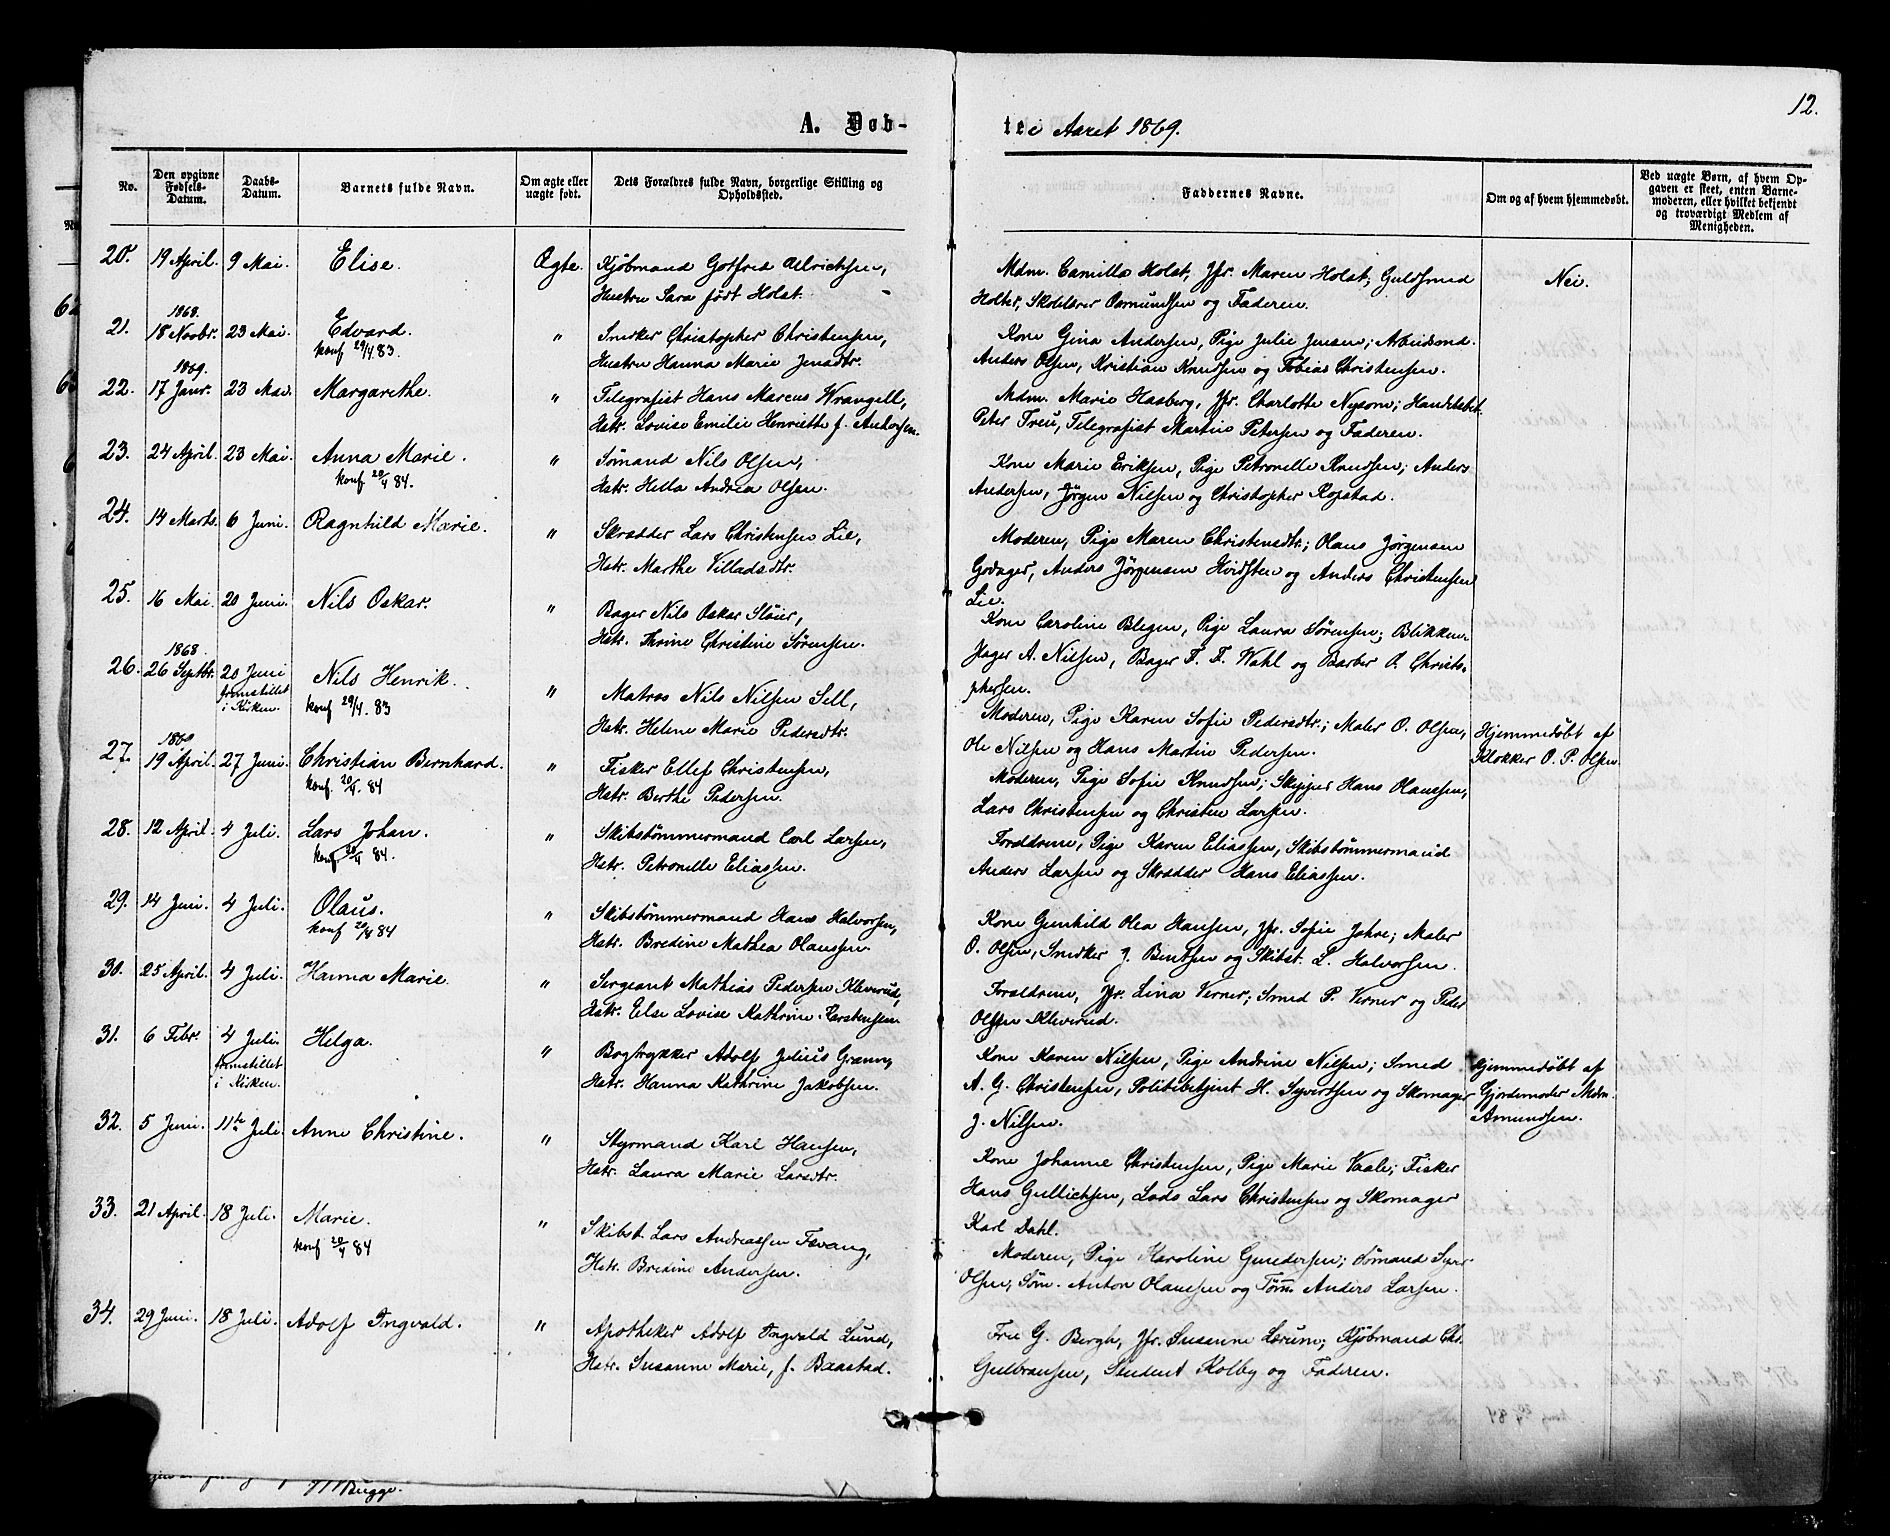 12.
A. Døb-
te i Aaret 1869.
No.
Den opgivne Fødsels-Datum.
Daabs-Datum.
Barnets fulde Navn.
Om ægte eller uægte født.
Dets Forældres fulde Navn, borgerlige Stilling og Opholdssted.
Faddernes Navne.
Om og af hvem hjemmedøbt.
Ved uægte Børn, af hvem Opgaven er skeet, enten Barnemoderen, eller hvilket bekjendt og troværdigt Medlem af Menigheden.
20. 19 April. 9 Mai. Elise. Ægte. Kjøbmand Gotfred Ulrichsen,
Hustru Sara født Holst.
Mdm. Camilla Holst, Jfr. Maren Holst, Guldsmed
Holter, Skolelærer Osmundsen og Faderen.
Nei.
1868.
21. 18 Novbr. 23 Mai. Edvard. " Snedker Christopher Christensen,
konf 29/4. 83.
Hustru Hanna Marie Jensdtr.
Kone Gina Andersen, Pige Julie Jensen; Arbeidsmd.
Anders Olsen, Kristian Knudsen og Tobias Christensen.
1869.
22. 17 Janr. 23 Mai. Margarethe. " Telegrafist Hans Marcus Wrangell,
Hstr. Lovise Emilie Henriette f.
Mdm. Marie Hasberg, Jfr. Charlotte Nysom; Handelsbet.
Peter Treu, Telegrafist Martin Petersen og Faderen.
23. 24 April. 23 Mai. Anna Marie. " Sømand Nils Olsen,
konf 20/4 84.
Hstr. Hella Andrea Olsen.
Kone Marie Eriksen, Pige Petronelle Knudsen; Anders
Andersen, Jørgen Nilsen og Christopher Ropstad.
24. 14 Marts. 6 Juni. Ragnhild Marie. " Skrædder Lars Christensen Lie,
Hstr. Marthe Villadsdtr.
Moderen, Pige Maren Christensdtr.; Olaus Jørgensen
Godager, Anders Jørgensen Hvidsten og Anders Christensen
Lie.
25. 16 Mai. 20 Juni. Nils Oskar. " Bager Nils Oskar Sløier,
Hstr. Thrine Christine Sørensen.
Kone Caroline Blegen, Pige Laura Sørensen; Blikken-
slager A. Nilsen, Bager F. F. Wahl og Barber O. Christo-
phersen.
1868.
26. 26 Septbr. 20 Juni fremstillet i Kirken. Nils Henrik. " Matros Nils Nilsen Sell,
konf 29/4. 83
Hstr. Helene Marie Pedersdtr.
Moderen, Pige Karen Sofie Pedersdtr.; Maler O. Olsen,
Ole Nilsen og Hans Martin Pedersen.
Hjemmedøbt af
Klokker O. P. Olsen.
1869
27. 19 April. 27 Juni. Christian Bernhard. " Fisker Ellef Christensen,
konf. 20/4. 84
Hstr. Berthe Pedersen.
Moderen, Pige Sofie Knudsen; Skipper Hans Olaussen,
Lars Christensen og Christen Larsen.
28. 12 April. 4 Juli. Lars Johan. " Skibstømmermand Carl Larsen,
konf 20/4 84.
Hstr. Petronelle Eliassen.
Forældrene, Pige Karen Eliassen, Skibstømmermand
Anders Larsen og Skrædder Hans Eliassen.
29. 14 Juni. 4 Juli. Olaus. " Skibstømmermand Hans Halvorsen,
konf 20/4 84
Hstr. Bredine Mathea Olaussen.
Kone Gunhild Olea Hansen, Jfr. Sofie Jahre; Maler
O. Olsen, Snedker J. Bentsen og Skibst. L. Halvorsen.
30. 25 April. 4 Juli. Hanna Marie. " Sergeant Mathias Pedersen Kleverud,
Hstr. Else Lovise Kathrine Karstensen.
Forældrene, Jfr. Lina Verner; Smed P. Verner og Peder
Olsen Kleverud.
31. 6 Febr. 4 Juli. fremstillet i Kirken. Helga. " Bogtrykker Adolf Julius Grann,
Hstr. Hanna Kathrine Jakobsen.
Kone Karen Nilsen, Pige Andrine Nilsen; Smed
A. G. Christensen, Politibetjent H. Syvertsen og Skomager
J. Nilsen.
Hjemmedøbt af
Gjordemoder Mdm.
Amundsen.
32. 5 Juni. 11te Juli Anne Christine. " Styrmand Karl Hansen,
Hstr. Laura Marie Larsdtr.
Kone Johanne Christensen, Pige Marie Vaale; Fisker
Hans Gullichsen, Lods Lars Christensen og Skomager
Karl Dahl.
33. 21 April. 18 Juli. Marie. " Skibst. Lars Andreassen Fevang,
konf 20/4 84
Hstr. Bredine Andersen.
Moderen, Pige Karoline Gundersen; Sømand Syver
Olsen, Søm. Anton Olaussen og Tømm. Anders Larsen.
34. 29 Juni. 18 Juli. Adolf Ingvald. " Apotheker Adolf Ingvald Lund,
Hstr. Susanne Marie, f. Baastad.
Frue G. Bergh, Jfr. Susanne Lærum; Kjøbmand Chr.
Gulbransen, Student Kolby og Faderen.
Bugge.